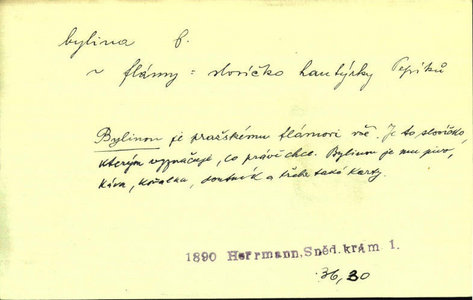 bylina f.
~ flámy = slovíčko hantýrky Pepíků
Bylinou je pražskému flámovi vše. Je to slovíčko,
kterým vyznačuje, co právě chce. Bylinou je mu pivo,
káva, kořalka, doutník a třeba také karty.
1890 Herrmann, Sněd. krám 1.
36, 30